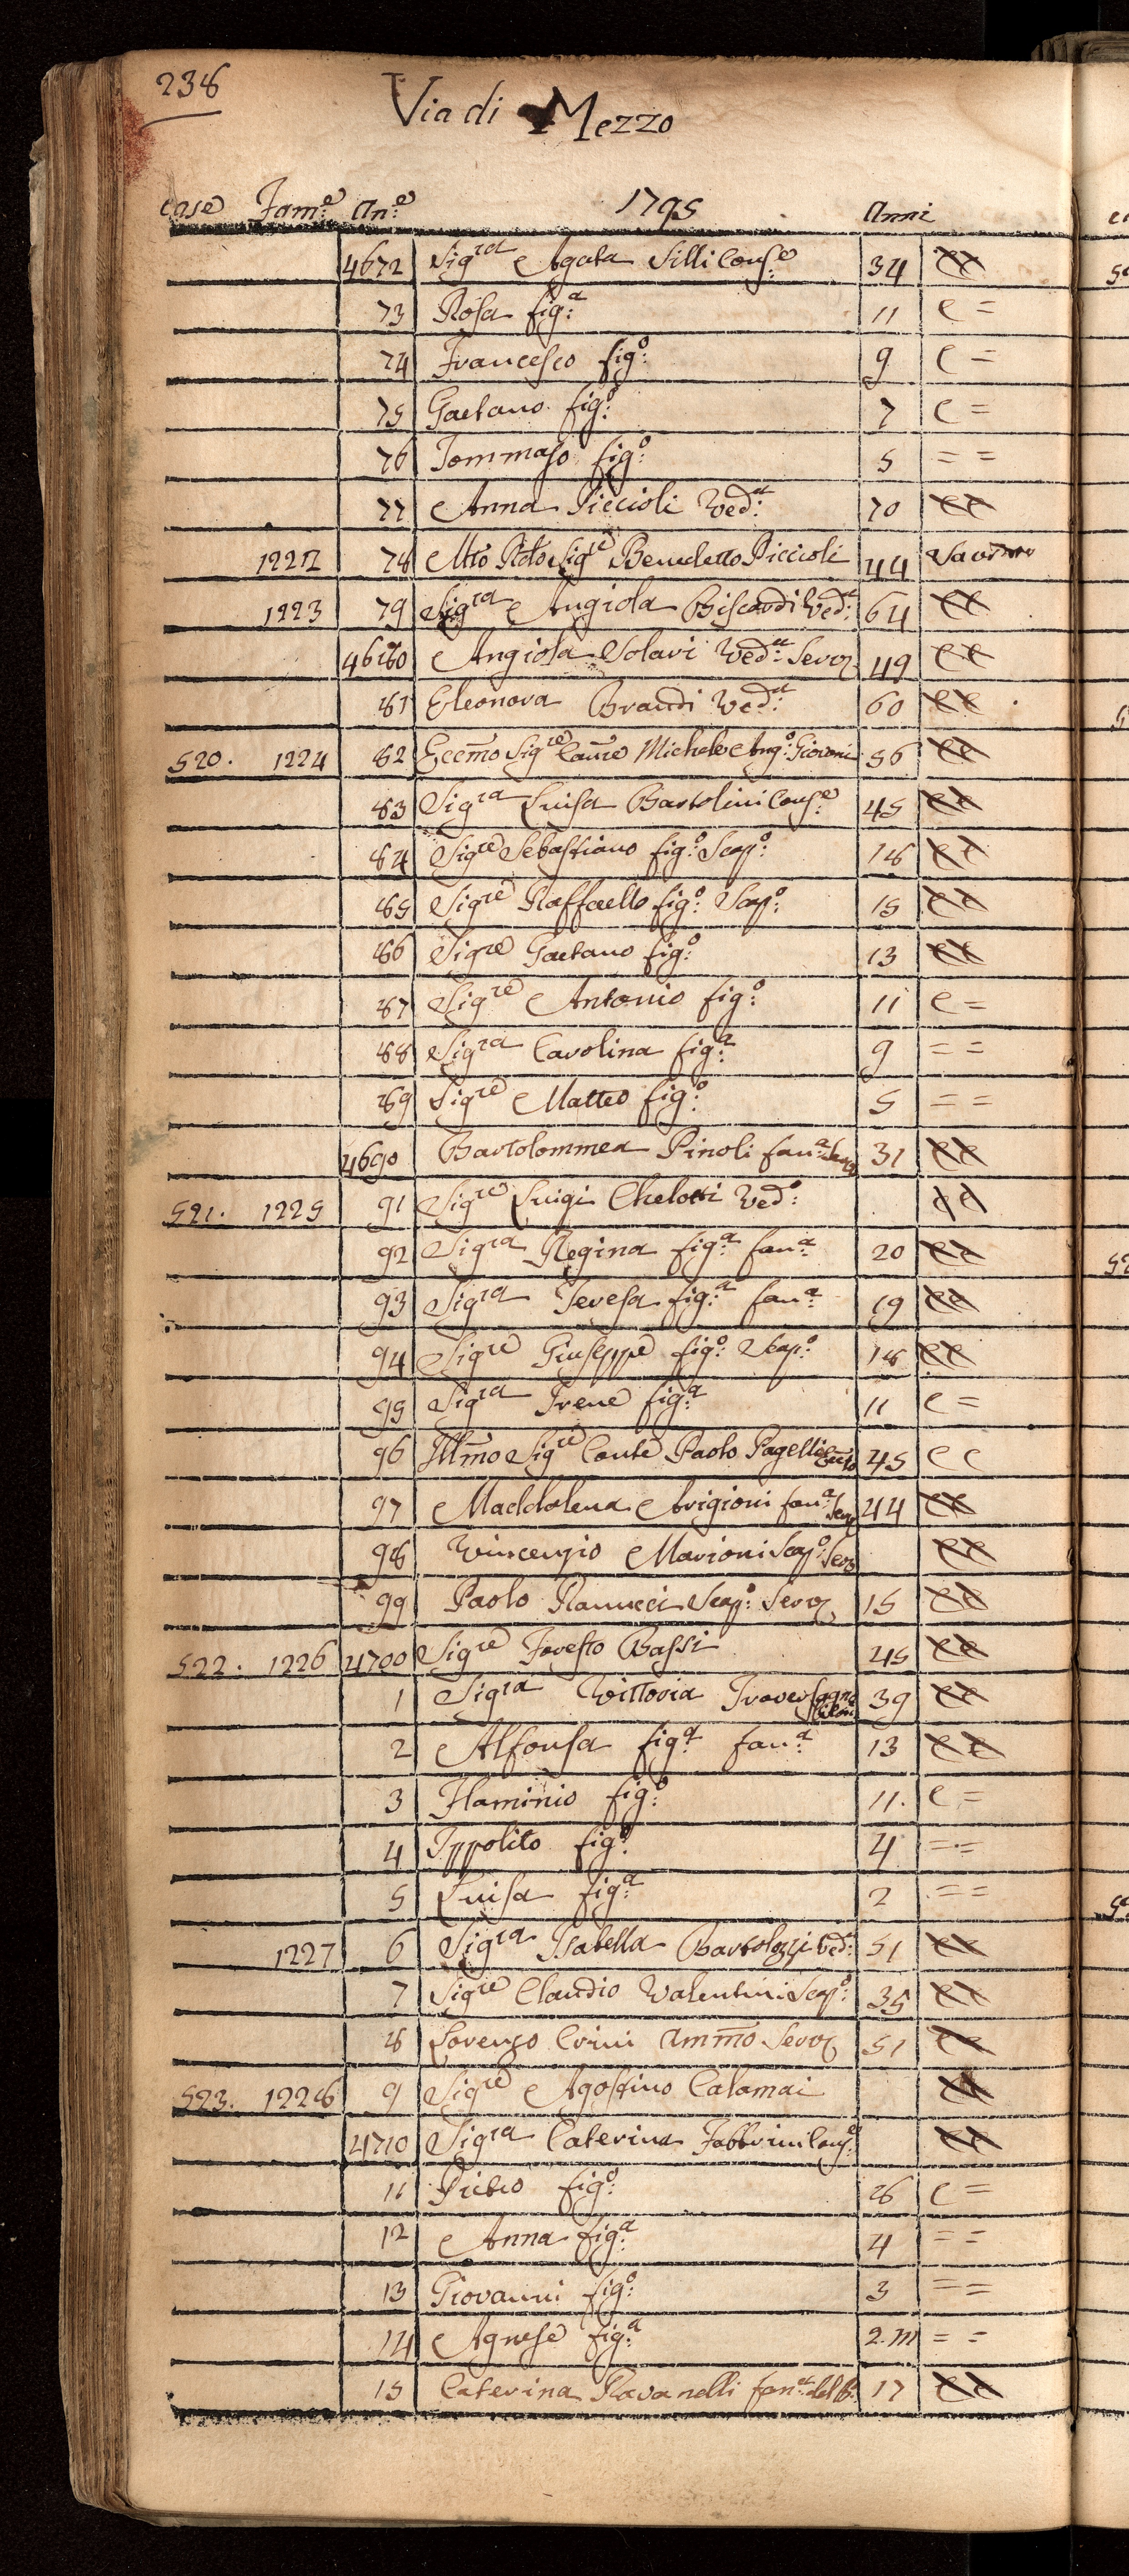 238
Via di Mezzo
case Fam:e An:e 1795 Anni
4672 Sigra Agata Silli Cons:e 34 cc
73 Rosa fig:a 11 c =
74 Francesco fig:o 9 c =
75 Gaetano fig:o 7 c =
76 Tommaso fig:o 5 = =
77 Anna Piccioli Ved:a 70 cc
1222 78 Mto Rdo Sigre Benedetto Piccioli 44
1223 79 Sigra Angiola Biscardi Ved:a 64 cc
4680 Angiola Solari Ved:a Serv 49 cc
81 Eleonora Brandi Ved:a 60 cc
520. 1224 82 Eccmo Sigre Michele Ang:o 56 cc
83 Sigra Luisa Bartolini Cons:e 45 cc
84 Sigre Sebastiano fig:o Scap:o 18 cc
85 Sigre Raffaello fig:o Scap:o 15 cc
86 Sigre Gaetano fig:o 13 cc
87 Sigre Antonio fig:o 11 c =
88 Sigra Carolina fig:a 9 = =
89 Sigre Matteo fig:o 5 = =
4690 Bartolommea Pinoli fan:a Serv 31 cc
521. 1225 91 Sigre Luigi Chelotti Ved:o cc
92 Sigra Regina fig:a fan:a 20 cc
93 Sigra Teresa fig:a fan:a 19 cc
94 Sigre Giuseppe fig:o Scap:o 18 cc
95 Sigra Irene fig:a 11 c =
96 Illmo Sigre Conte Paolo Pagelli 45 c c
97 Maddalena Arigioni fan:a Serv 44 cc
98 Vincenzio Marioni Scap:o Serv cc
99 Paolo Ranucci Scap:o Serv 15 cc
522. 1226 4700 Sigre Foresto Bassi 45 cc
1 Sigra Vittoria 39 cc
2 Alfonsa fig:a fan:a 13 cc
3 Flaminio fig:o 11. c =
4 Ippolito fig:o 4 = =
5 Luisa fig:a 2 = =
1227 6 Sigra Isabella Bartolozzi Ved:a 51 cc
7 Sigre Claudio Valentini Scap:o 35 cc
8 Lorenzo Crini Ammo Serv 51 cc
523. 1228 9 Sigre Agostino Calamai cc
4710 Sigra Caterina Fabbrini Cons:e cc
11 Pietro fig:o 8 c =
12 Anna fig:a 4 = =
13 Giovanni fig:o 3 = =
14 Agnese fig:a 2.m = =
15 Caterina Ravanelli fan:a 17 cc